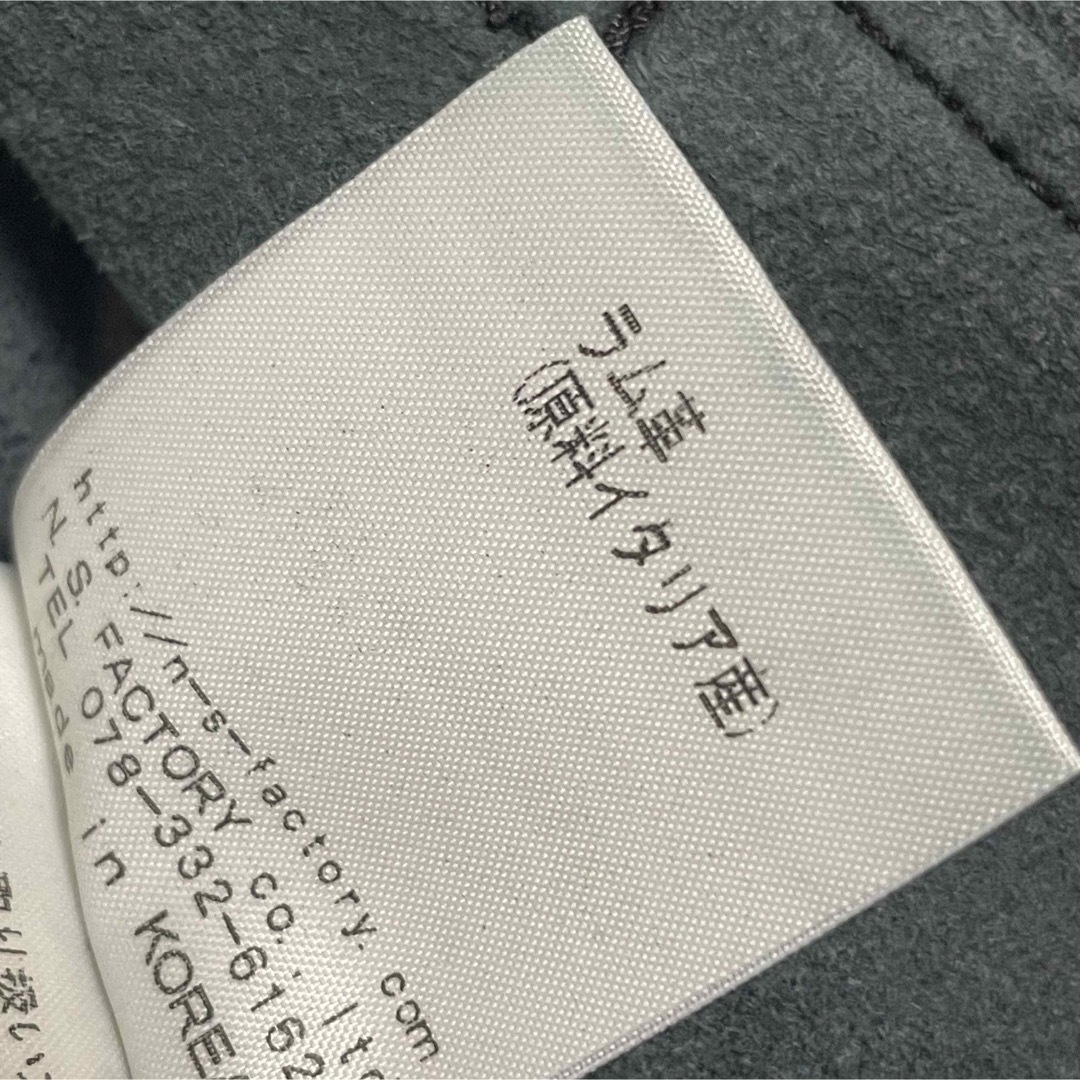 ラム革
(原料イタリア産)
http://n-s-factory.com
N.S.FACTORY co.,
TEL 078-332-6162
made in